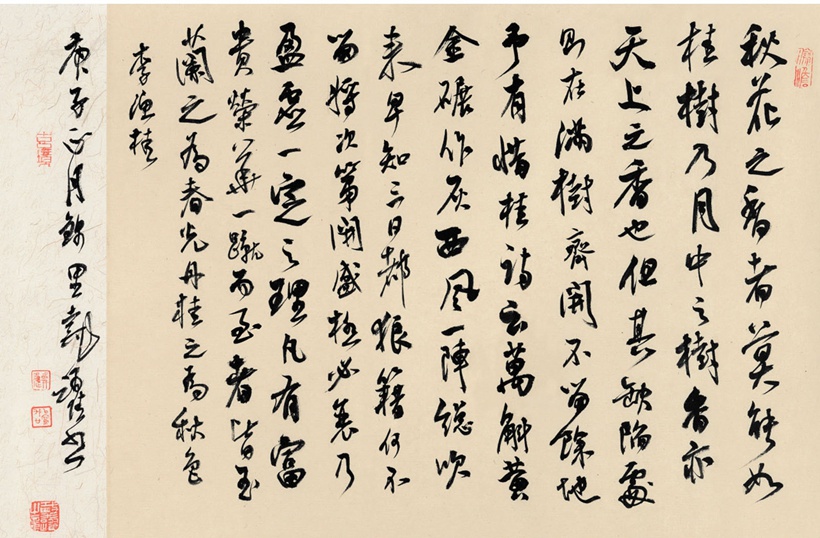 秋花之香者莫能如
桂樹乃月中之樹香亦
天上之香也但其缺陷處
則在滿樹齊開不留餘地
予有惜桂詩云萬斛黃
金碾作灰西風一陣總吹
來早知三日都狼籍何不
留將次第開盛極必衰乃
盈虛一定之理凡有富
貴榮華一蹴而至者皆玉
蘭之為春光丹桂之為秋色
李漁桂
庚子正月錦里